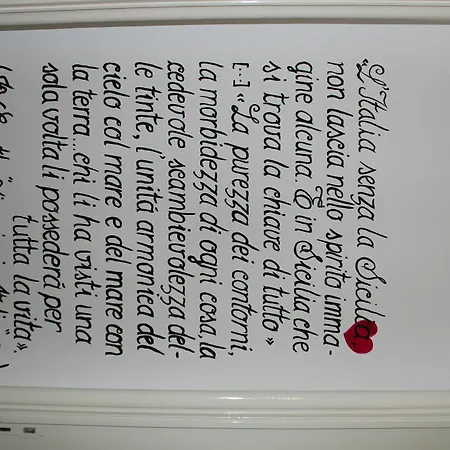 «L'Italia senza la Sicilia
non lascia nello spirito imma-
gine alcuna. È in Sicilia che
si trova la chiave di tutto»
[...] «La purezza dei contorni,
la morbidezza di ogni cosa, la
cedevole scambievolezza del-
le tinte, l'unità armonica del
cielo col mare e del mare con
la terra...chi li ha visti una
sola volta li possederà per
tutta la vita».